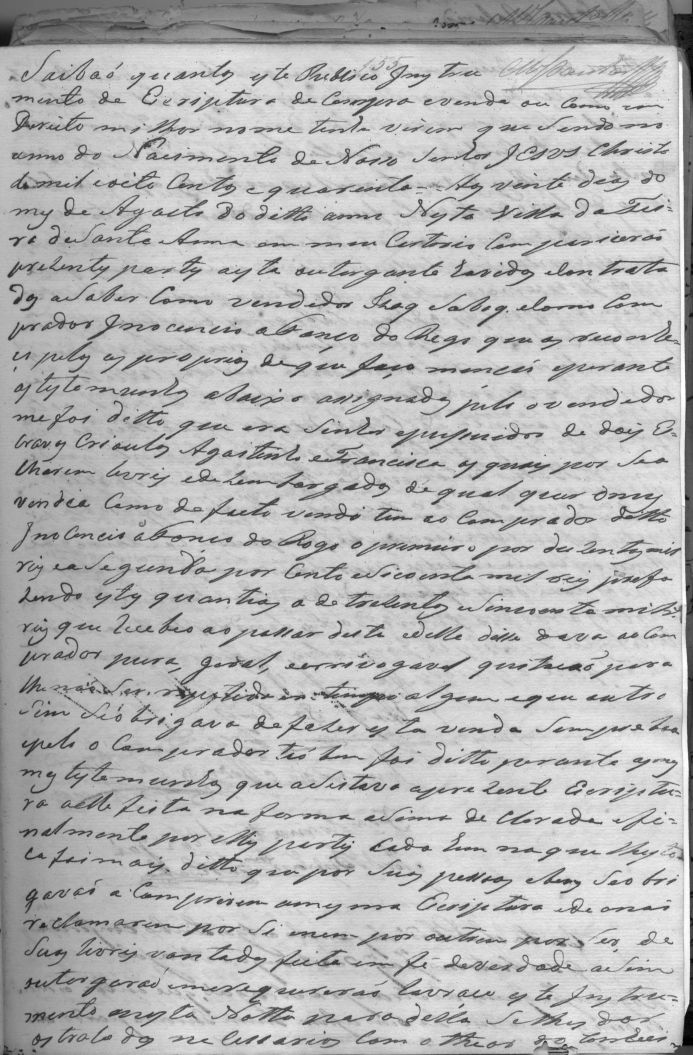 155
Saibaõ quantos este Publico Instru
mento de Escriptura de Compra e venda ou Como em
Direito milhor nome tenha virem que Sendo no
anno do Nacimento de Nosso Senhor JESVS Christo
de mil e oito Centos e quarenta Aos vinte dias do
mes de Agosto do ditto anno Nesta Villa da Fei-
ra de Santa Anna em meu Cartorio Compareceraõ
prezentes partes a esta outorgante havidos e Contrata
dos a Saber Como vendedor e Como Com
prador Innocencio do Rego que os reconhe-
ci pelos os proprios de que faço mencaõ e perante
as testemunhas abaixo assignadas pelo o vendedor
me foi ditto que era Senhor e pussuidor de dois Es-
cravos Crioulos Agostinho e Francisca os quais por Se a
charem livres e dezembargados de qual quer onus
vendia Como de facto vendi tem ao Comprador ditto
Innocencio do Rego o primeiro por duzentos mil
reis e a Segunda por Cento e Sicoenta mil reis prefa
zendo estas quantias a de trezentos e Sincoenta mil
reis que recebeo ao passar desta e delle disse dava ao Com
prador pura, geral, e errivogavel quitacaõ para
lhe naõ Ser repetida em tempo algum e que outro
Sim Se obrigava de fazer esta venda Sempre boa
e pelo o Comprador tãobem foi ditto perante as mes
mas testemunhas que aSeitava a prezente Escriptu-
ra a elle feita na forma aSima declarada e fi-
nalmente por elles partes cada hum na que lhes to
ca foi mais ditto que por Suas pessoas e bens Se obri
gavaõ a Comprirem a mesma Escriptura e de a naõ
reclamarem por Si nem por outrem por Ser de
Suas livres vontades feita em fé de verdade aSim
outorgaraõ e me requereraõ lavrace este Instru-
mento nesta Notta para della Se lhes dar
os tralados necessarios Com o theor